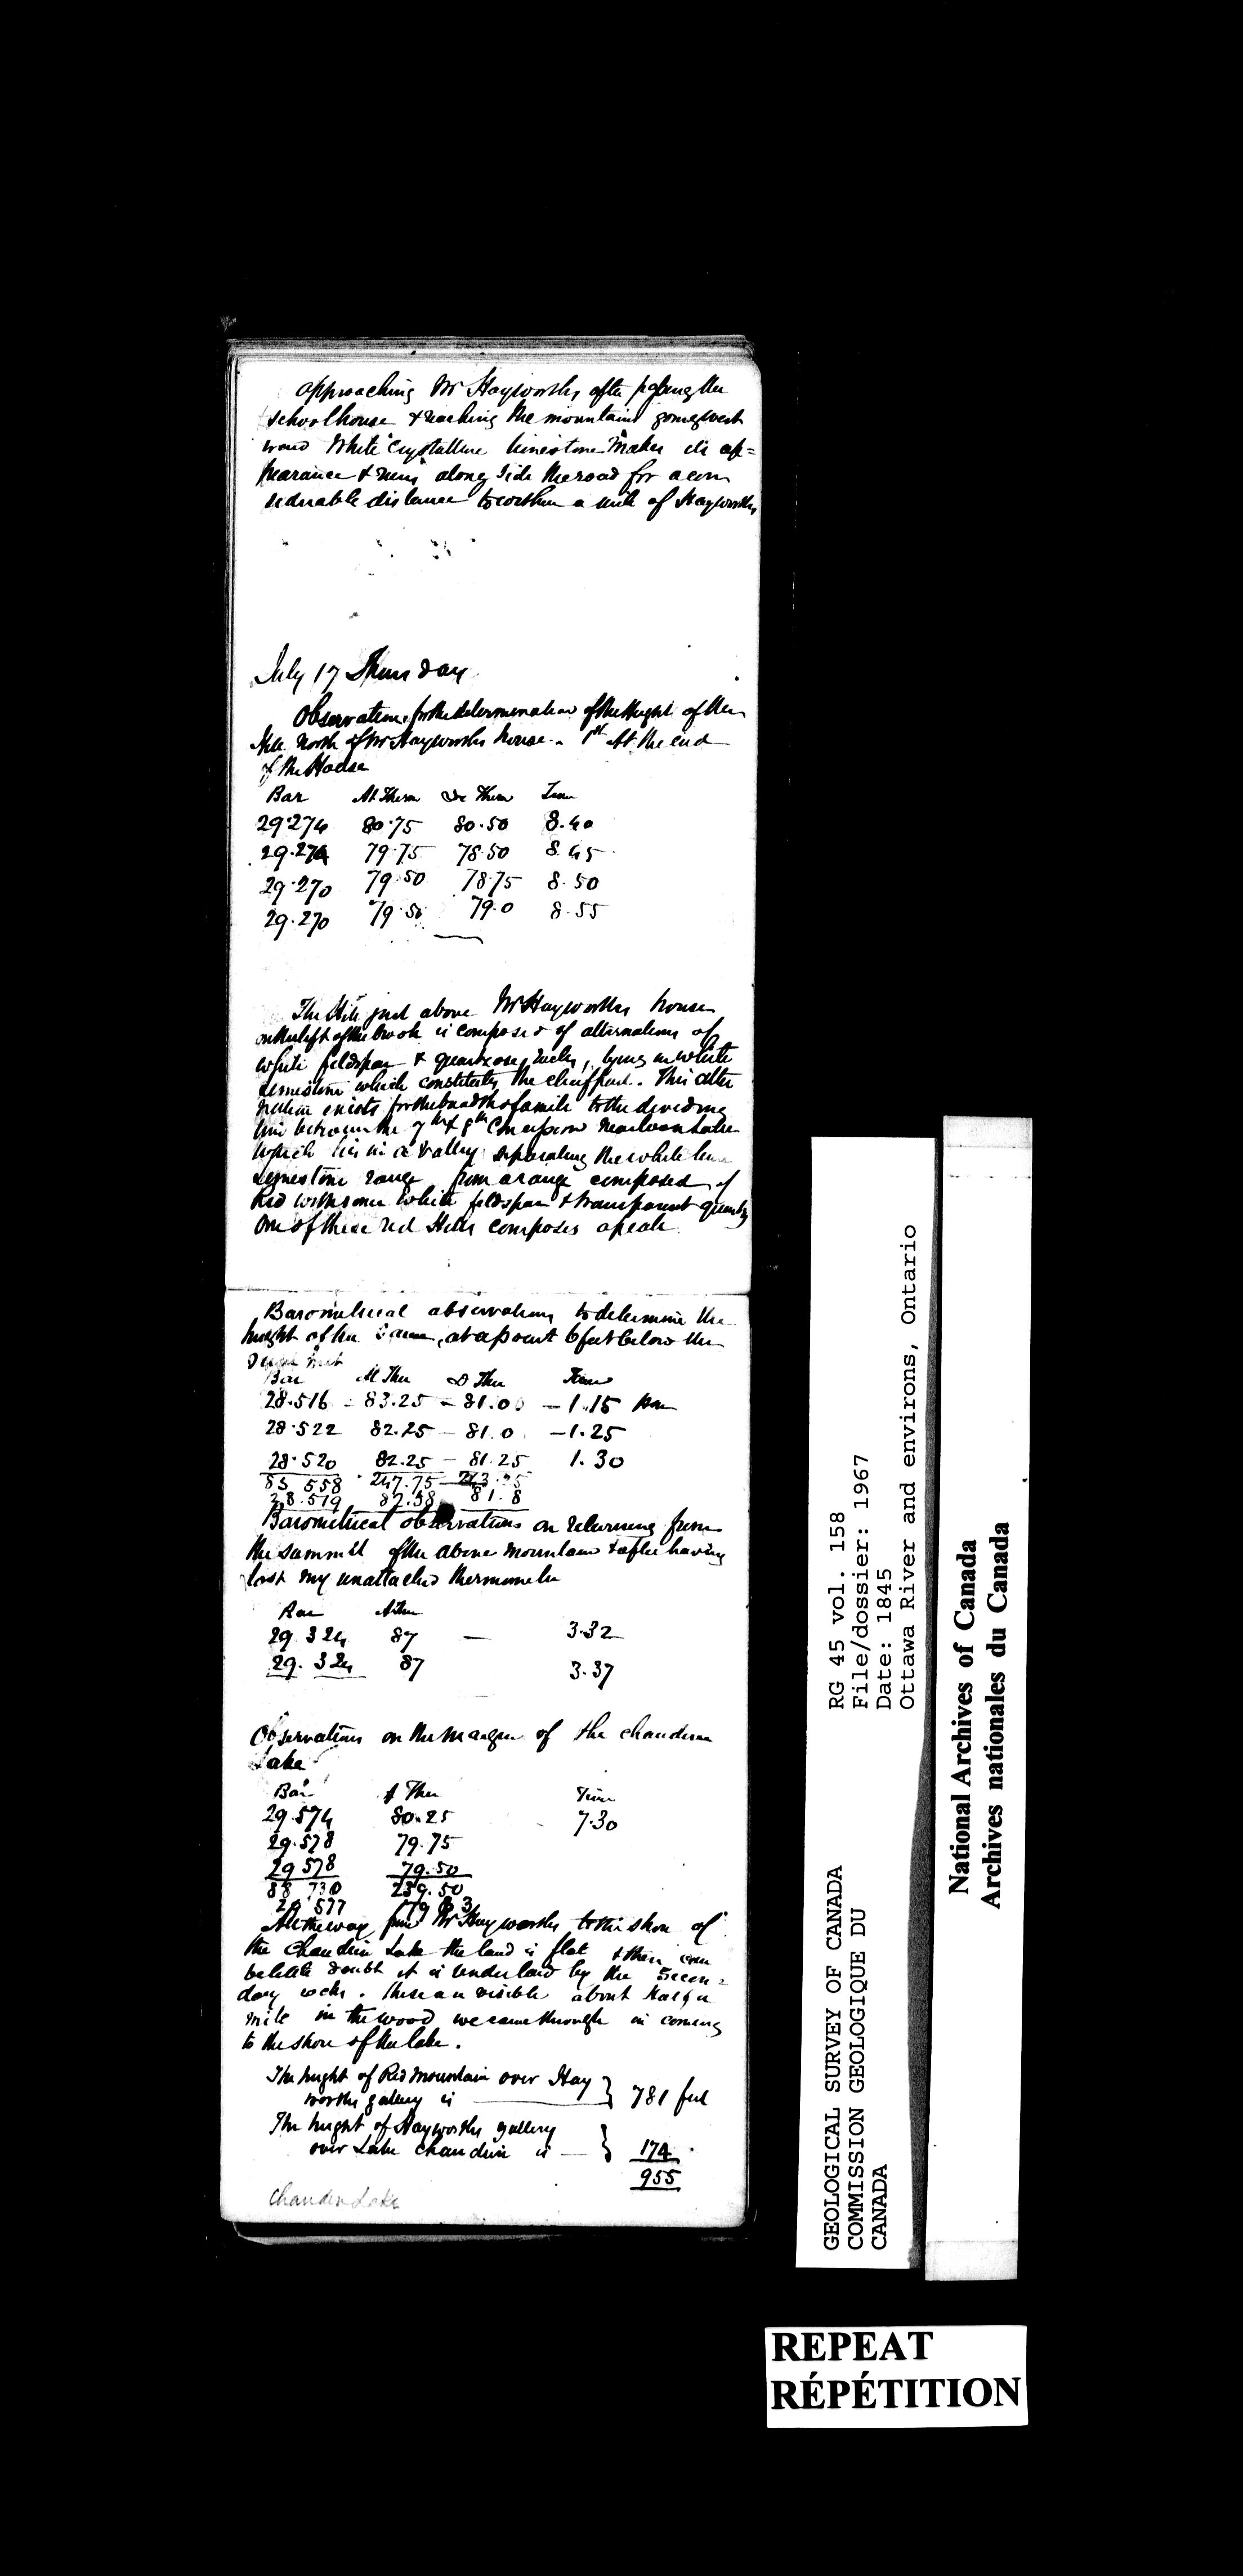 approaching Mr Hayworths after passing the
schoolhouse & reaching the mountains going west
ward White Crystalline limestone makes its ap=
pearance & runs along side the road for a con
siderable distance to within a mile of Hayworths
July 17 Thursday
Observations for the determination of the Height of the
Hill North of Mr Hayworths house - 1st At the end
of the House
Bar At Therm De Therm Time
29.274 80.75 80.50 8.40
29.274 79.75 78.50 8.45
29.270 79.50 78.75 8.50
29.270 79.50 79.0 8.55
The Hill just above Mr Hayworths house
on the left of the brook is composed of alternations of
white feldspar & quartzose rocks, lying in white
limestone which constitutes the chief part. This alter
nation exists for the breadth of a mile to the dividing
line between the 7th & 8th Concession near
which lies in a valley separating the white
limestone range from a range composed of
Red with some white feldspar & transparent quartz
One of these red Hills composes a peak
Barometrical observations to determine the
height of the same, at a point 6 feet below the
summit
Bar At Ther D Ther Time
28.516 = 83.25 - 81.00 - 1.15 Pm
28.522 82.25 - 81.0 - 1.25
28.520 82.25 - 81.25 1.30
85 558 247.75 243.25
28.519 82.58 81.8
Barometrical observations on returning from
the summit of the above mountain & after having
lost my unattached thermometer
Bar A Ther
29.324 87 — 3.32
29.324 87 3.37
Observations on the margin of the Chaudiere
Lake
Bar A Ther Time
29.574 80.25 7.30
29.578 79.75
29 578 79.50
88 730 239.50
29 577 79 83
All the way from Mr Hayworths to the shore of
the Chaudiere Lake the land is flat & there can
be little doubt it is underlaid by the Secon=
dary rocks. These are visible about half a
mile in the wood we came through in coming
to the shore of the lake.
The height of Red Mountain over Hay
worths gallery is — } 781 feet
The height of Hayworths gallery
over Lake Chaudiere is — } 174
955
Chaudiere Lake
RG 45 vol. 158
File/dossier: 1967
Date: 1845
Ottawa River and environs, Ontario
GEOLOGICAL SURVEY OF CANADA
COMMISSION GEOLOGIQUE DU
CANADA
National Archives of Canada
Archives nationales du Canada
REPEAT
RÉPÉTITION